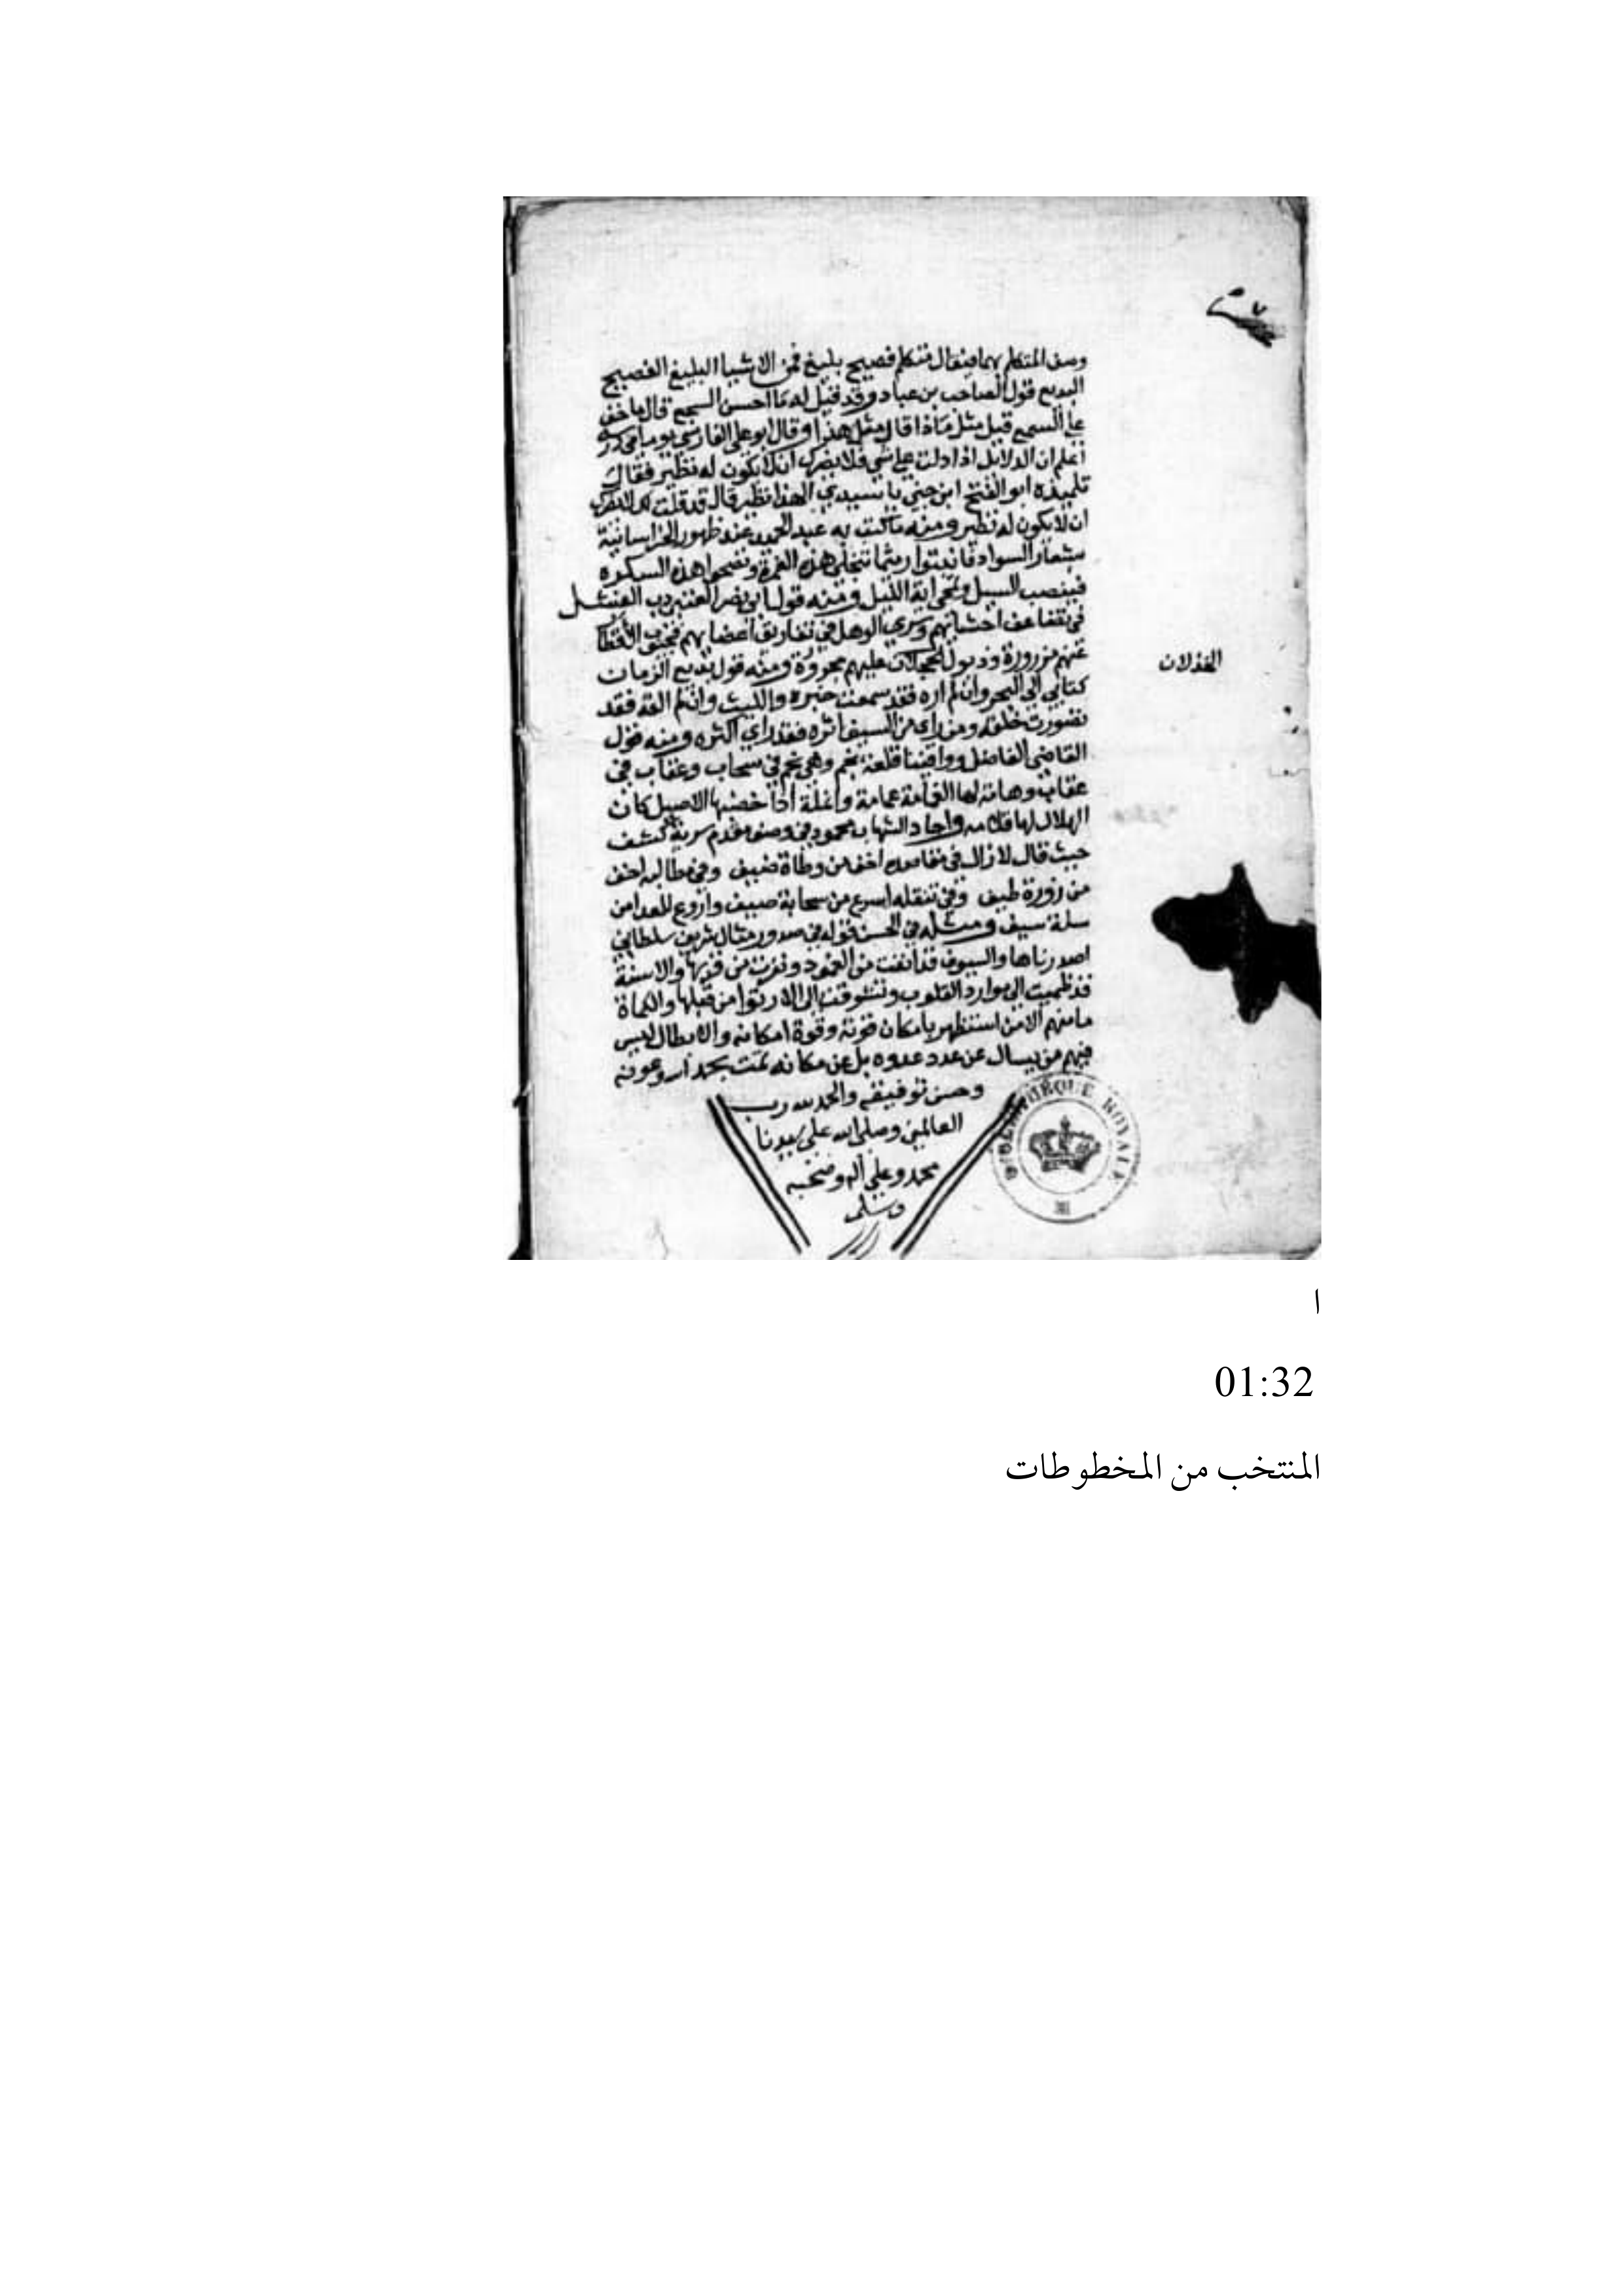 وصف المتكلم بهما فيقال متكلم فصيح بليغ فمن الاشيا البليغ الفصيح
البديع قول الصاحب بن عباد وقد قيل له ما احسن السجع قال ما خف
على السمع قيل مثل ماذا قال مثل هذا وقال ابو على الفارسي يوما في درسه
اعلم ان الدلايل اذا دلت على شي فلا يضرك ان لا يكون له نظير فقال
تلميذه ابو الفتح ابن جني يا سيدي الهذا نظير قال قد قلت لك لا يضرك
ان لا يكون له نظير ومنه ما كتب به عبد الحميد عند ظهور الخراسانية
بشعار السواد فاثبتوا ريثما تنجلي هذه الغمرة وتصحوا هذه السكرة
فينضب السيل وتمحى اية الليل ومنه قول ابي نصر العتبي دب الفشل
في تضاعيف احشائهم وسرى الوهل في تفاريق اعضائهم فجيوب الاقطار
عنهم مزرورة وذيول عليهم مجرورة ومنه قول بديع الزمان
الخذلان
كتابي الى البحر وان لم اره فقد سمعت خبره والليث وان لم القه فقد
تصورت خلقه ومن راى من السيف اثره فقد راي اكثره ومنه قول
القاضي الفاضل ووافينا قلعة نجم وهي نجم في سحاب وعقاب في
عقاب وهامة لها الغمامة عمامة وانملة اذا خضبها الاصيل كان
الهلال لها قلامه واجاد الشهاب محمود في وصف مقدم سرية كشف
حيث قال لا زال في مقاصده اخف من وطاة ضيف وفي مطالبه اخف
من زورة طيف وفي تنقله اسرع من سحابة صيف واروع للعدا من
سلة سيف ومثله في الحسن قوله في صدور مثال شريف سلطاني
اصدرناها والسيوف قد انفت من الغمود ونفرت من قربها والاسنة
قد ظميت الى موارد القلوب وتشوقت الى الارتوا من قبلها والكماة
ما منهم الا من استظهر بامكان قوته وقوة امكانه والابطال ليس
فيهم من يسال عن عدد عدوه بل عن مكانه تمت بحمد الله وعونه
وحسن توفيقه والحمد لله رب
العالمين وصلى الله على سيدنا
محمد وعلى اله وصحبه
وسلم
BIBLIOTHEQUE ROYALE
ا
01:32
المنتخب من المخطوطات